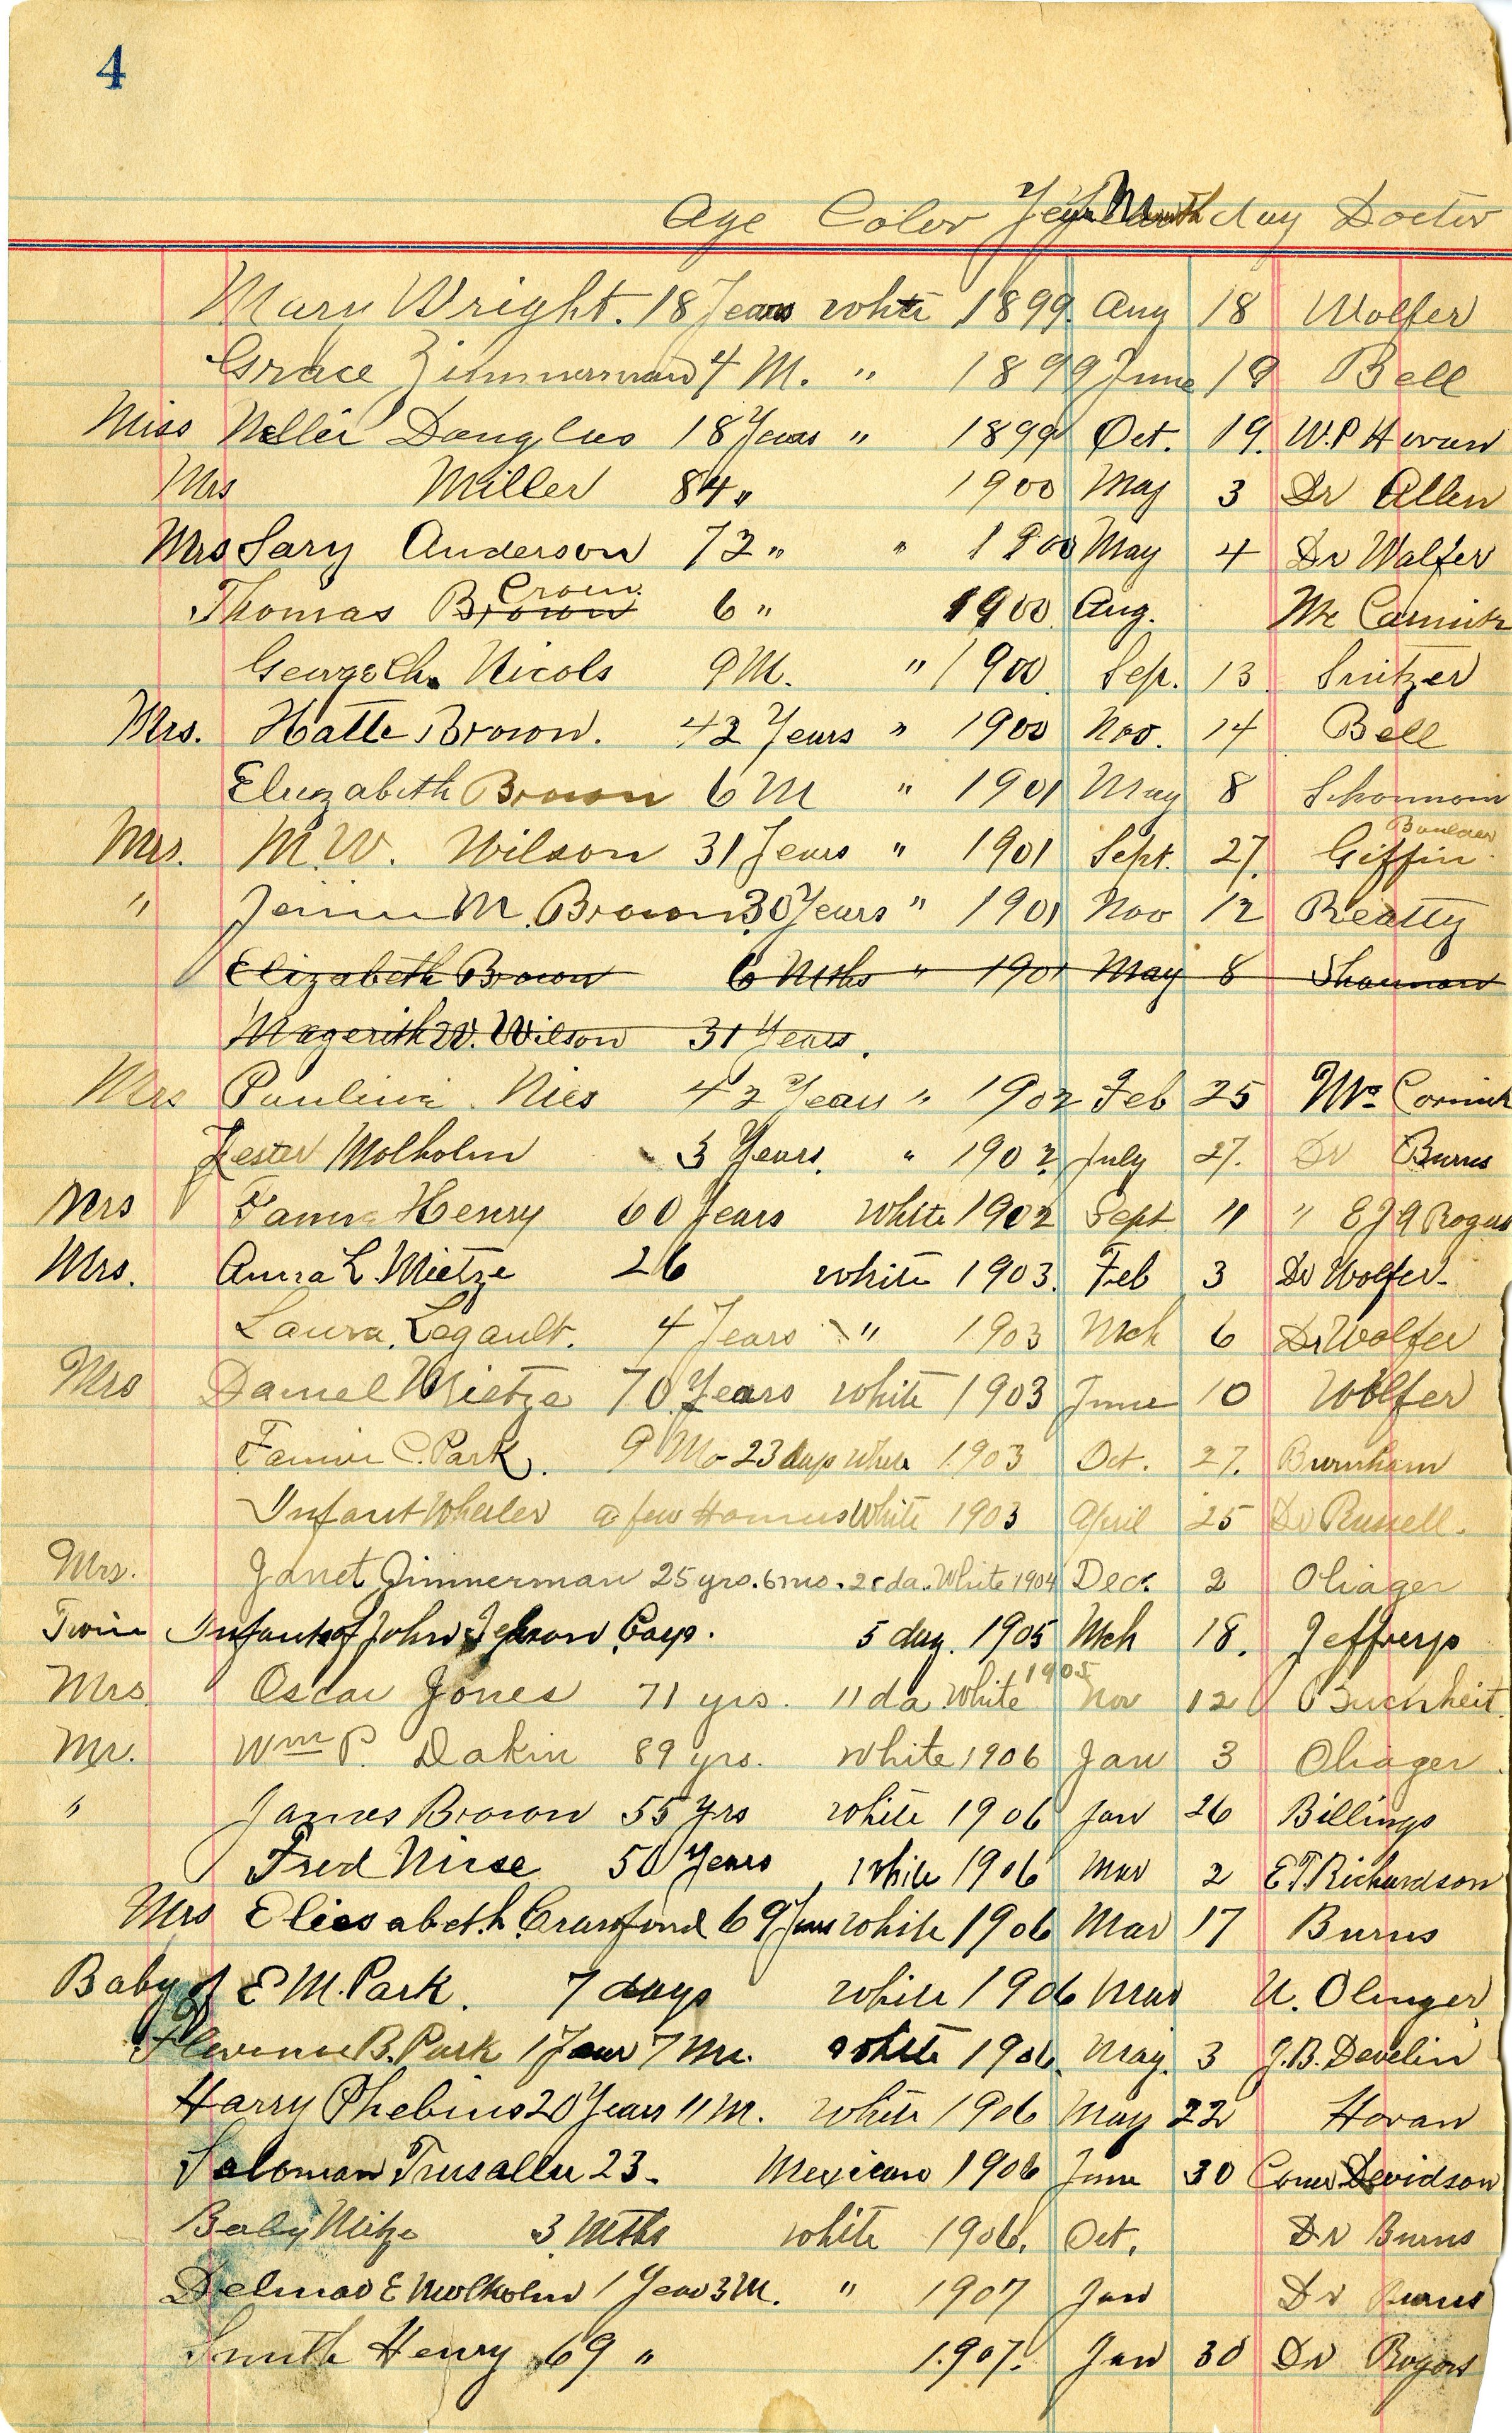 4
Age Color Year Month day Doctor
Mary Wright. 18 Years white 1899. Aug 18 Wolfer
Grace Zimmerman 4 M. " 1899 June 19 Bell
Miss Nellie Douglas 18 Years " 1899 Oct. 19. W.P Horan
Mrs Miller 84 " 1900 May 3 Dr Allen
Mrs Sary Anderson 72 " " 1900 May 4 Dr Walfer
Crow.
Thomas Brown 6 " 1900 Aug. Mc
George Ch. Nicols 9 M. " 1900 Sep. 13
Mrs. Hatte Brown. 42 Years " 1900 Nov. 14 Bell
Elizabeth Brown 6 M " 1901 May 8
Boulder
Mrs. M.W. Wilson 31 Years " 1901 Sept. 27. Giffin
" Jennie M. Brown 30 Years " 1901 Nov 12 Beatty
Elizabeth Brown 6 Mths " 1901 May 8 Shannon
W. Wilson 31 Years.
Mrs Paulina Nies 42 Years " 1902 Feb 25 Mc Cormick
Lester Molholm 3 Years. " 1902 July 27. Dr Burns
Mrs Fannie Henry 60 Years white 1902 Sept 11 " E J A Rogers
Mrs. Anna L. Mietze 26 white 1903. Feb 3 Dr Wolfer
Laura Legault. 4 Years " 1903 Mch 6 Dr Wolfer
Mrs Daniel Mietze 70 Years white 1903 June 10 Wolfer
Fannie C. Park. 9 Mo 23 days white 1903 Oct. 27. Burnham
Infant Wheeler a few Houers White 1903 April 25 Dr Russell.
Mrs. Janet Zimmerman 25 yrs. 6 mo. da. White 1904 Dec. 2 Olinger
Twin Infants of John 5 day. 1905 Mch 18. Jeffreys
1905
Mrs Oscar Jones 71 yrs. 11 da. White Nov 12 Buchheit.
Mr. Wm P. Dakin 89 yrs. white 1906 Jan 3 Olinger.
" James Brown 55 Yrs white 1906 Jan 26 Billings
Fred Niese 50 Years white 1906 Mar 2 E.T. Richardson
Mrs Eliesabeth Crawford 69 Years while 1906 Mar 17 Burns
Baby of E M. Park. 7 days white 1906 Mar U. Olinger
Florence B. Park 1 Year 7 Mo. white 1906. May. 3 J.B. Develin
Harry Phebius 20 Years 11 M. white 1906 May 22 Horan
Soloman 23 Mexican 1906 June 30 Davidson
Baby Mitze 3 Mths white 1906. Oct. Dr Burns
Delmar E Molholm 1 Year 3 M. " 1907 Jan Dr Burns
Smith Henry 69 " 1907. Jan 30 Dr Rogers